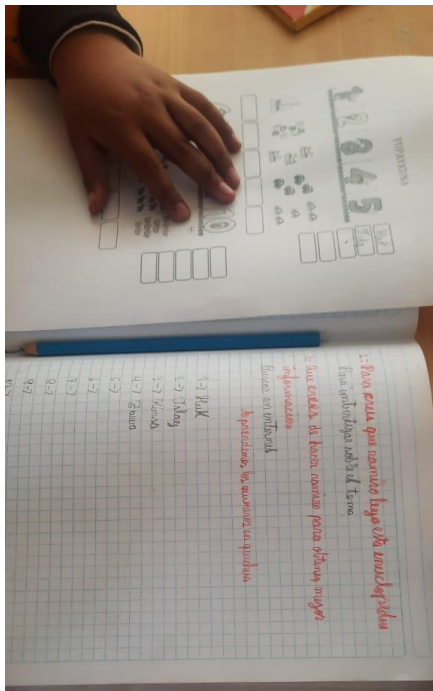 YUPAYKUNA
1 2 3 4 5
10
1- Para creu que ramiro leyo esta enciclopedia
Para imbestigar sobre el tema
2- Que crees de hacer ramiro para obtener mejor
informacion
Buscar en internet
Aprendimos los numeros en quechua
1-) Huk
2-) Iskay
3-) Kimsa
4-) Tawa
5-)
6-)
7-)
8-)
9-)
10-)